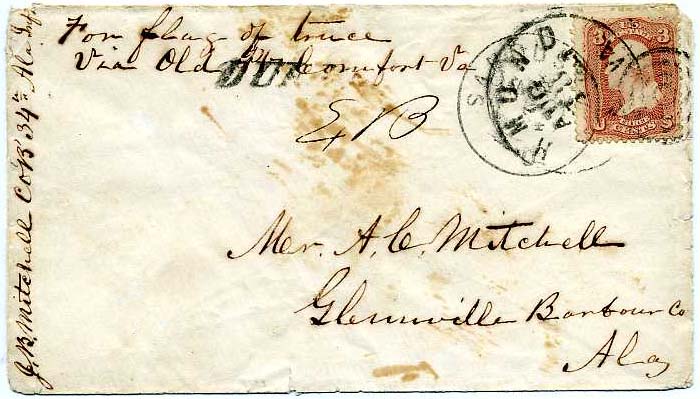 For flag of truce
Via Old Pt Comfort Va
DUE
E B
Mr. A. C. Mitchell
Glennville Barbour Co
Ala
J. B. Mitchell Co B 34th Ala Inf.
RICHMOND VA
SAN
3 3
U S
CENTS